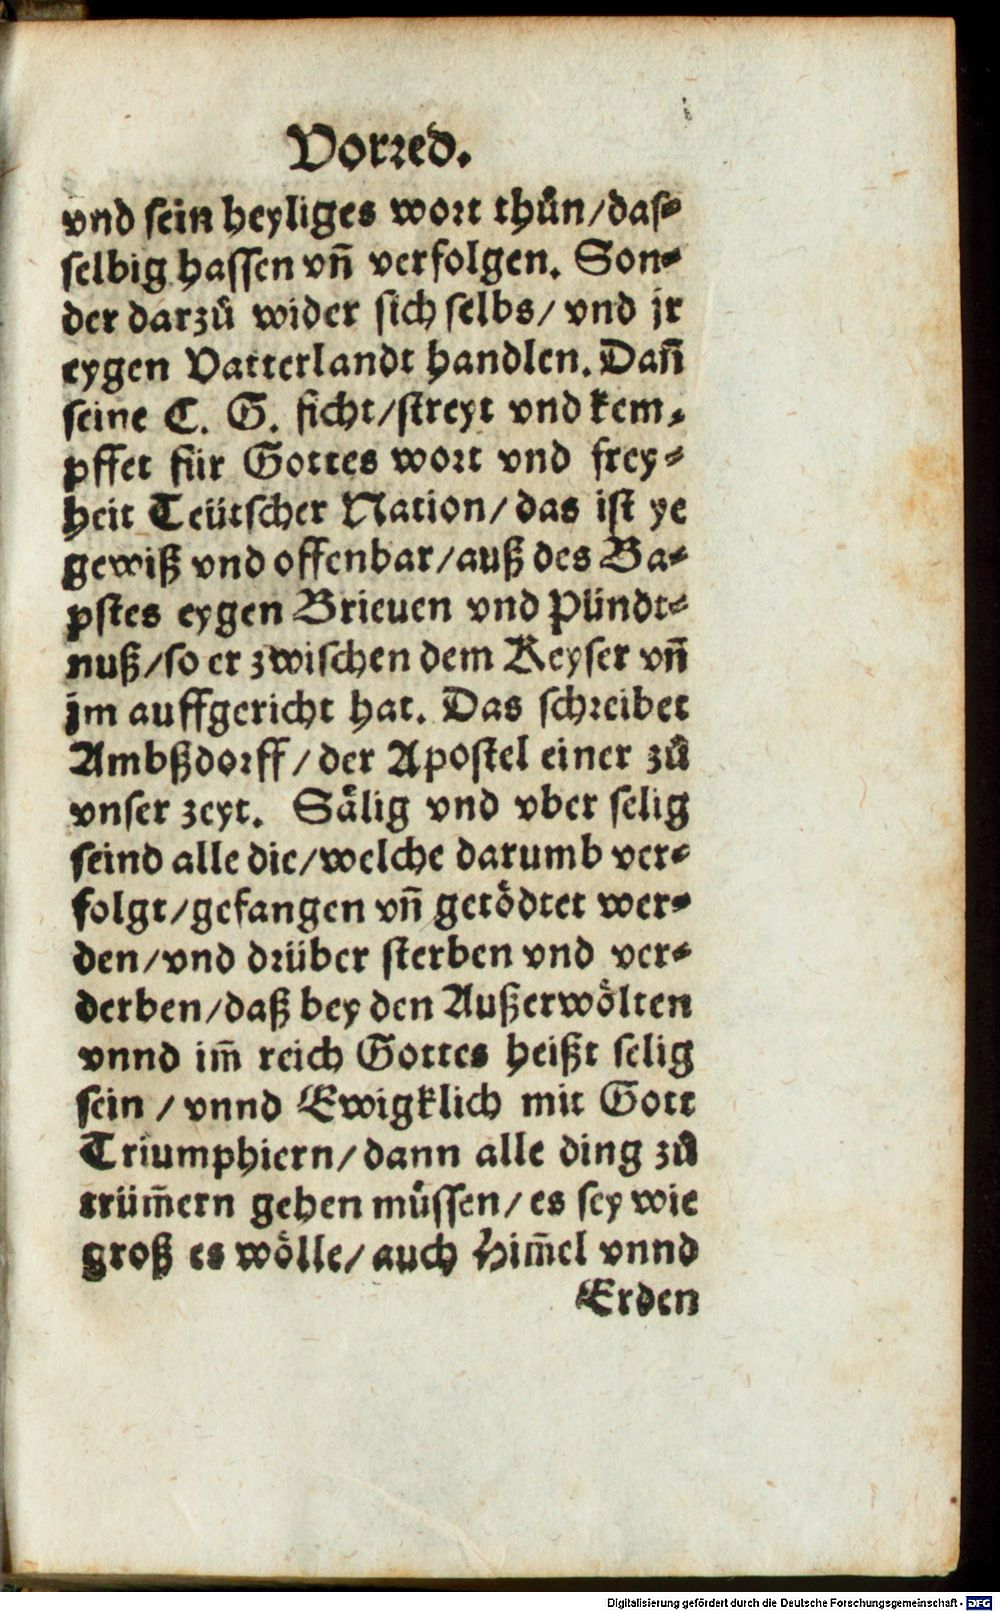 Vorred.
vnd sein heyliges wort thůn/das-
selbig hassen vñ verfolgen. Son-
der darzů wider sich selbs/ vnd jr
eygen Vatterlandt handlen. Dañ
seine C. G. ficht/streyt vnd kem-
pffet für Gottes wort vnd frey-
heit Teütscher Nation/ das ist ye
gewiß vnd offenbar/auß des Ba-
pstes eygen Brieuen vnd Pündt-
nuß/so er zwischen dem Keyser vñ
jm auffgericht hat. Das schreibet
Ambßdorff/ der Apostel einer zů
vnser zeyt. Sålig vnd vber selig
seind alle die/welche darumb ver-
folgt/gefangen vñ getödtet wer-
den/vnd drüber sterben vnd ver-
derben/daß bey den Außerwölten
vnnd im̃ reich Gottes heißt selig
sein / vnnd Ewigklich mit Gott
Triumphiern/dann alle ding zů
trüm̃ern gehen müssen/ es sey wie
groß es wölle/auch Him̃el vnnd
Erden
Digitalisierung gefördert durch die Deutsche Forschungsgemeinschaft - DFG